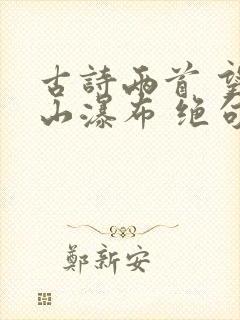 古詩兩首 望
山瀑布 绝句
鄭新安